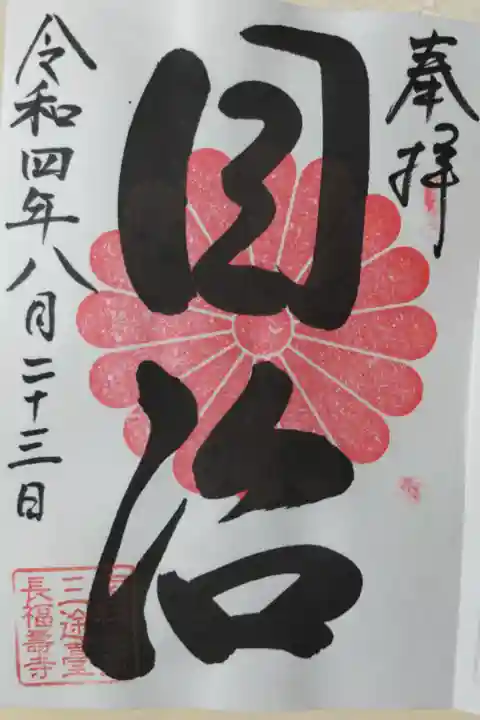 奉拝
目治
令和四年八月二十三日
三途臺
長福壽寺